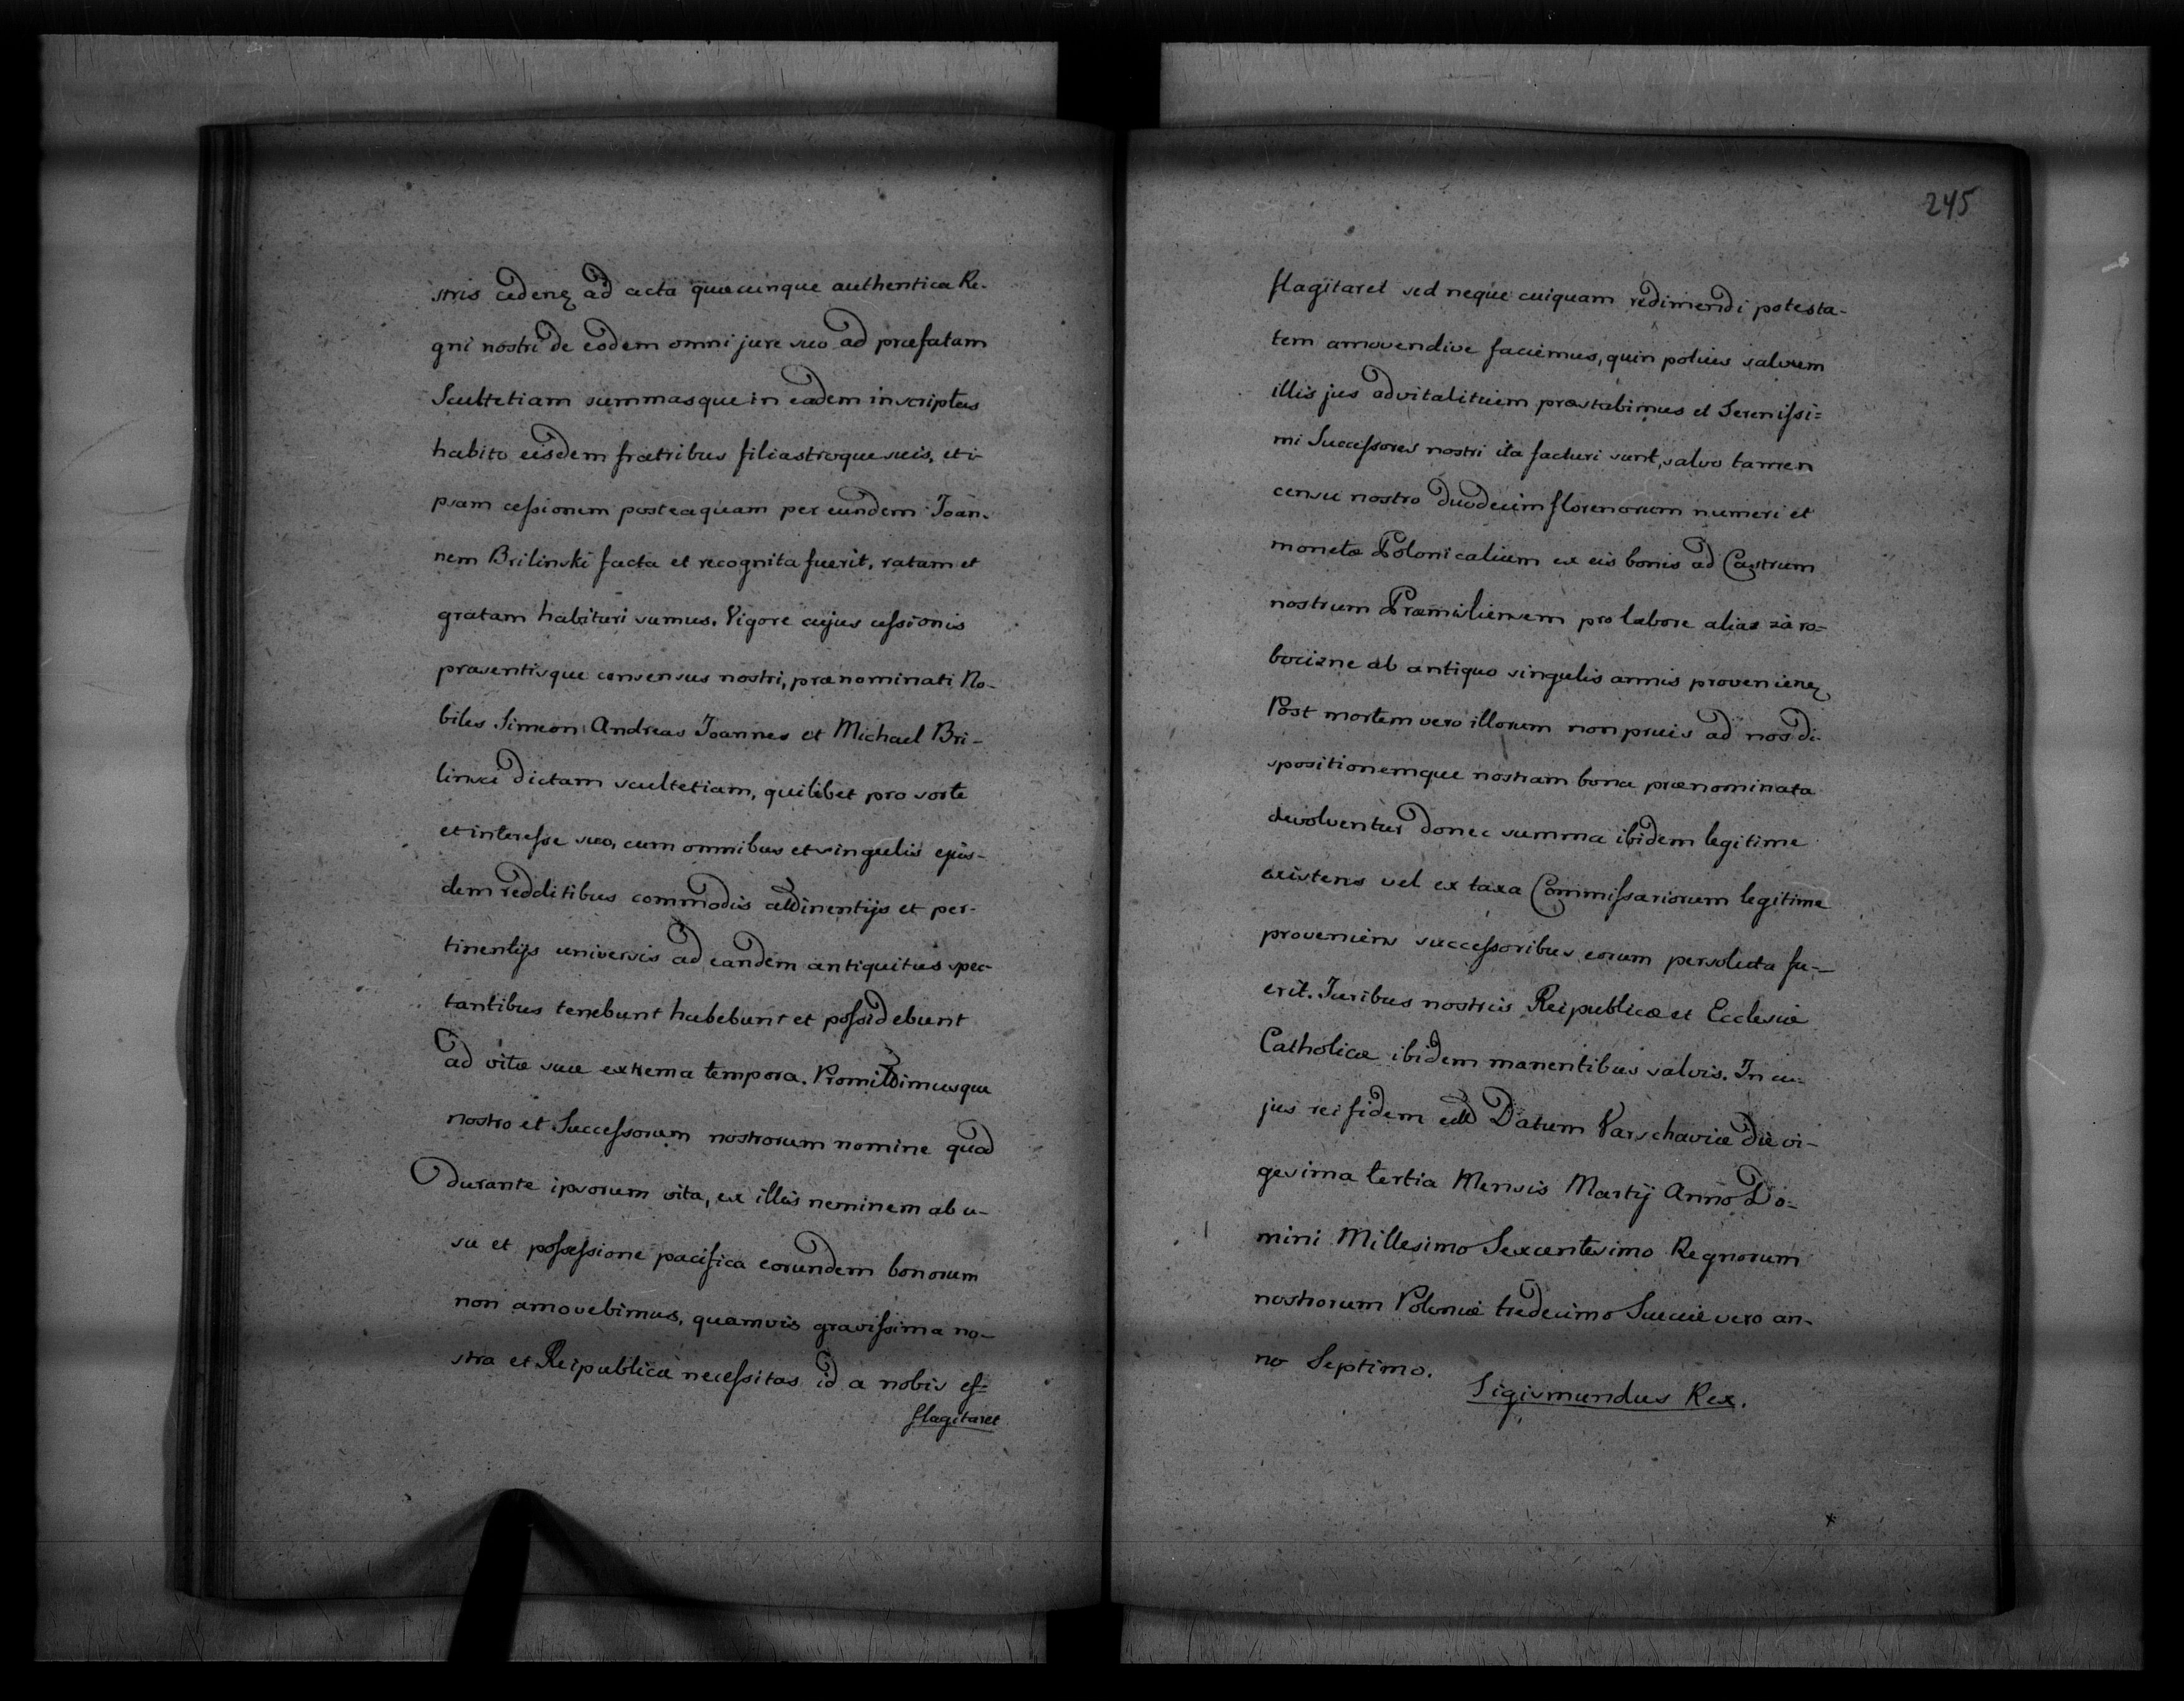 stris cedenꝫ ad acta quæcunque authentica Re-
gni nostri de eodem omni jure suo ad præfatam
Scultetiam summasque in eadem inscriptas
habito eisdem fratribus filiastroque suis, et i-
psam cessionem posteaquam per eundem Joan-
nem Brilinski facta et recognita fuerit, ratam et
gratam habituri sumus. Vigore cujus cessionis
præsentisque consensus nostri, prænominati No-
biles Simeon Andreas Joannes et Michael Bri-
linsci dictam scultetiam, quilibet pro sorte
et interesse suo, cum omnibus et singulis ejus-
dem redditibus commodis attinentijs et per-
tinentijs universis ad eandem antiquitus spec-
tantibus tenebunt habebunt et possidebunt
ad vitæ suæ extrema tempora. Promittimusque
nostro et Successorum nostrorum nomine quod
durante ipsorum vita, ex illis neminem ab u-
su et possessione pacifica eorundem bonorum
non amovebimus, quamvis gravissima no-
stra et Reipublicæ necessitas id a nobis ef=
flagitaret
245
flagitaret sed neque cuiquam redimendi potesta-
tem amovendive faciemus, quin potius salvum
illis jus advitalitium præstabimus et Serenissi=
mi Successores nostri ita facturi sunt, salvo tamen
censu nostro duodecim florenorum numeri et
monetæ Polonicalium ex eis bonis ad Castrum
nostrum Præmisliensem pro labore alias za ro-
bocizne ab antiquo singulis annis provenienꝫ
Post mortem vero illorum non prius ad nos di-
spositionemque nostram bona prænominata
devolventur donec summa ibidem legitime
existens vel ex taxa Commissariorum legitime
proveniens successoribus eorum persoluta fu-
erit. Juribus nostris Reipublicæ et Ecclesiæ
Catholicæ ibidem manentibus salvis. In cu-
jus rei fidem ett Datum Varschaviæ die vi-
gesima tertia Mensis Martij Anno Do-
mini Millesimo Sexcentesimo Regnorum
nostrorum Poloniæ tredecimo Sueciæ vero an-
no Septimo.
Sigismundus Rex.